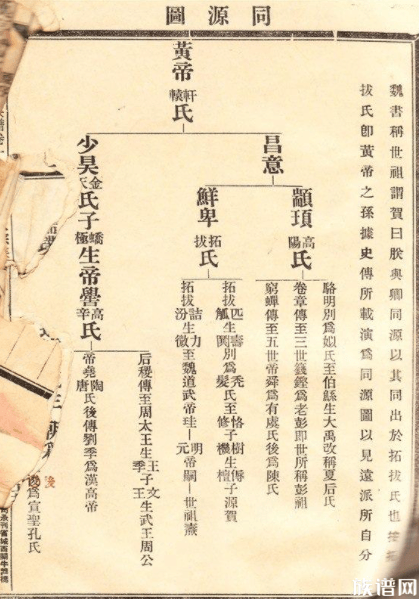 同源圖
魏書稱世祖謂賀曰朕與卿同源以其同出於拓
拔氏卽黃帝之孫據史傳所載演爲同源圖以見遠派所自分
黃帝
軒轅
氏
昌意
少昊
金天
氏子
蟜極
生帝嚳
高辛
氏
顓頊
高陽
氏
鮮卑
拓拔
氏
駱明別爲姒氏至伯鯀生大禹改稱夏后氏
卷章傳至三世籛鏗爲老彭卽世所稱彭祖
窮蟬傳至五世帝舜爲有虞氏後爲陳氏
拓拔
匹
生
壽
禿
髮氏至
傉檀
子源賀
拓拔
詰汾
生
力微
至魏道武帝珪
明元
帝嗣
世祖燾
后稷傳至周太王生
王季
王子
文王
生武王周公
帝堯
陶唐
氏後傳劉季爲漢高帝
後爲宣聖孔氏
族谱网